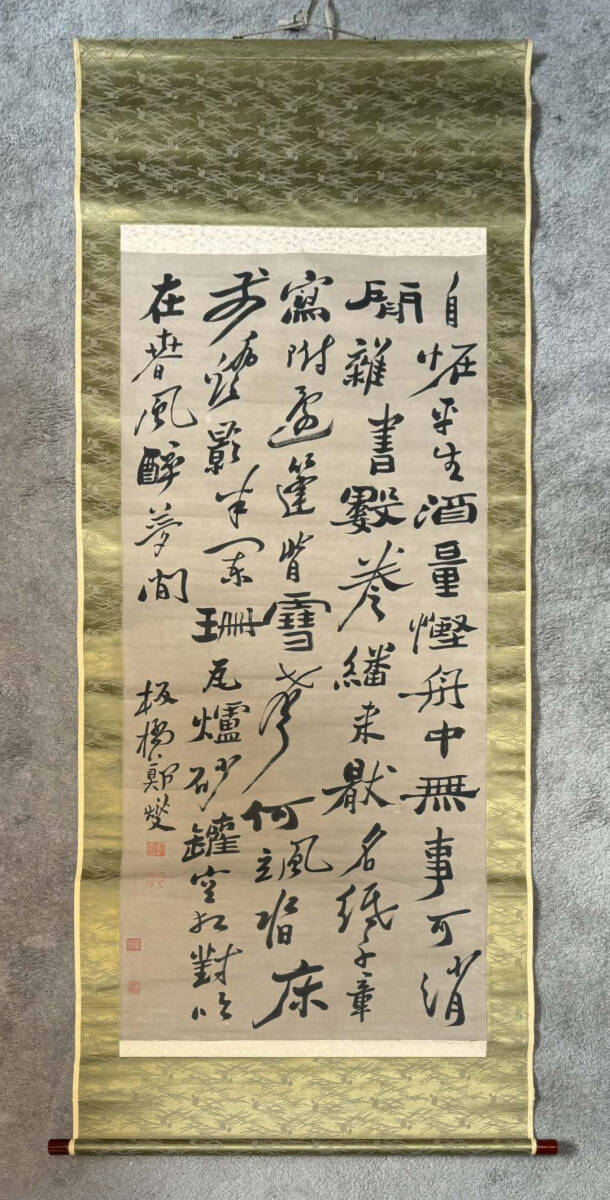 自怪平生酒量慳舟中無事可消
閒雜書數卷繙来厭名紙千章
寫附還篷背雪聲何颯沓床
前燈影半闌珊瓦爐砂罐空相對
在春風醉夢間
板橋鄭燮